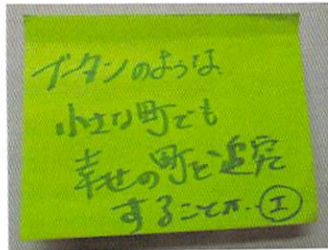 ブータンのような
小さな町でも
幸せの町を追究
することが…Ⓘ